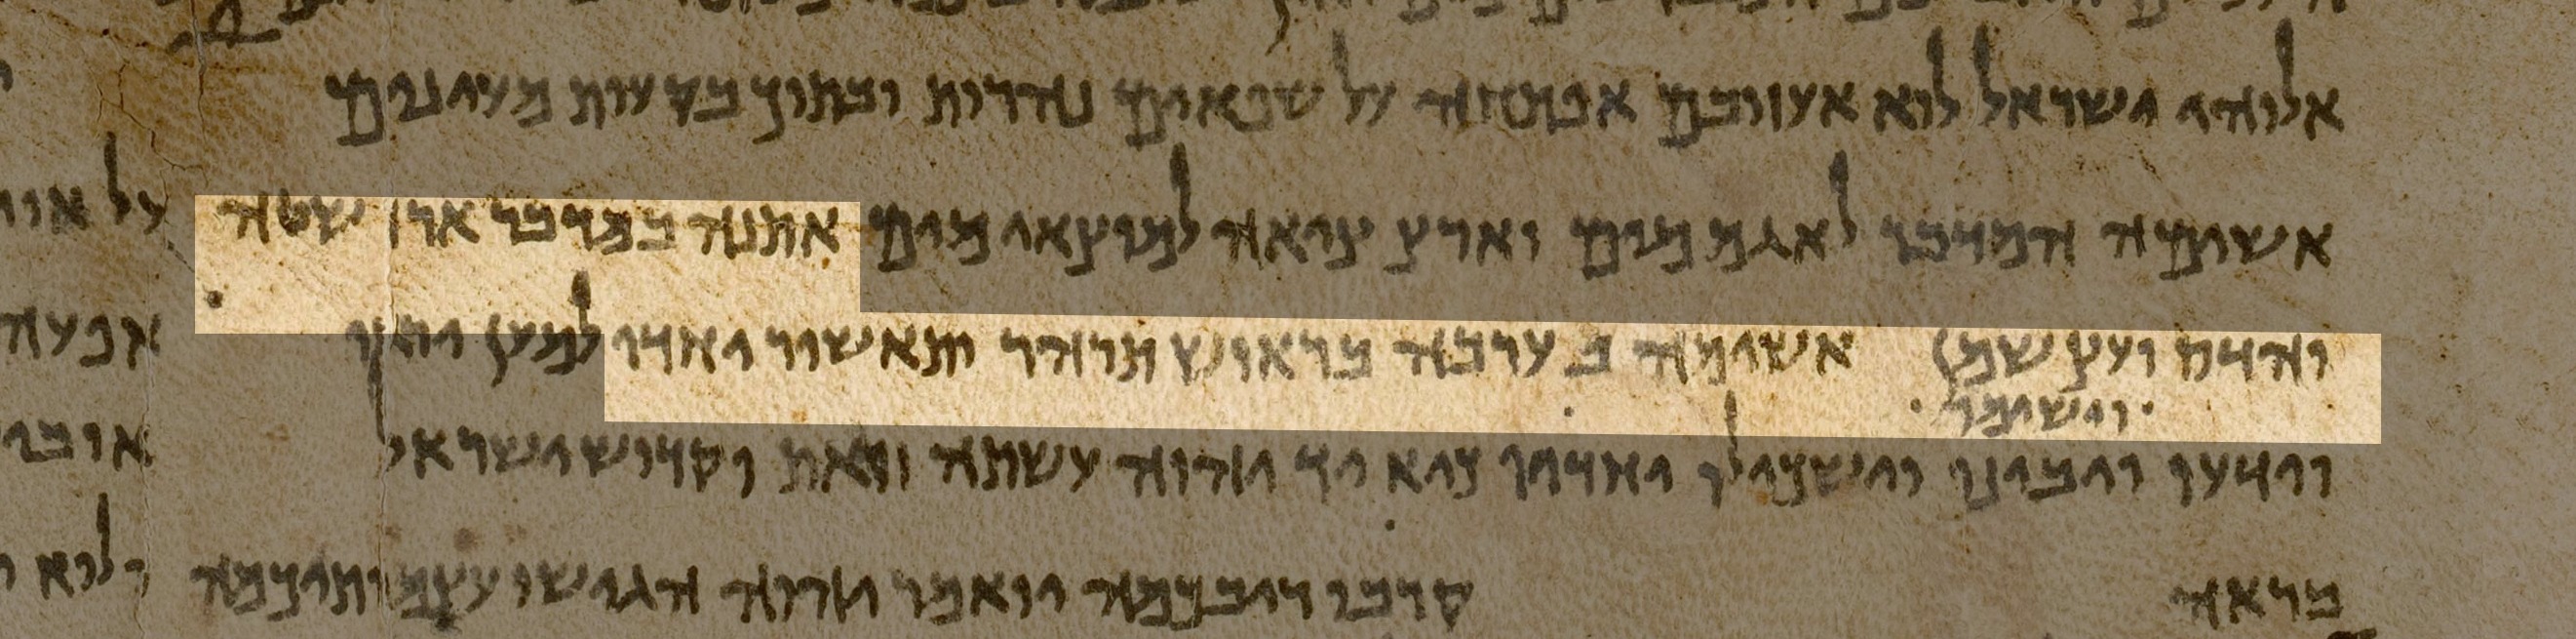 אלוהי ישראל לוא אעוזבם אפתחה על שפאים נהרות ובתוך בקעות מעינים
אשימה המדבר לאגם מים וארץ ציאה למוצאי מים אתנה במדבר ארז שטה
והדס ועץ שמן אשימה בערבה בראוש תרהר ותאשור יחדיו למען יראו
וישימו
וידעו ויבינו וישכילו יחדיו כיא יד יהוה עשתה זואת וקדוש ישראל
בראה קרבו ריבכמה יואמר יהוה הגישו עצמותיכמה